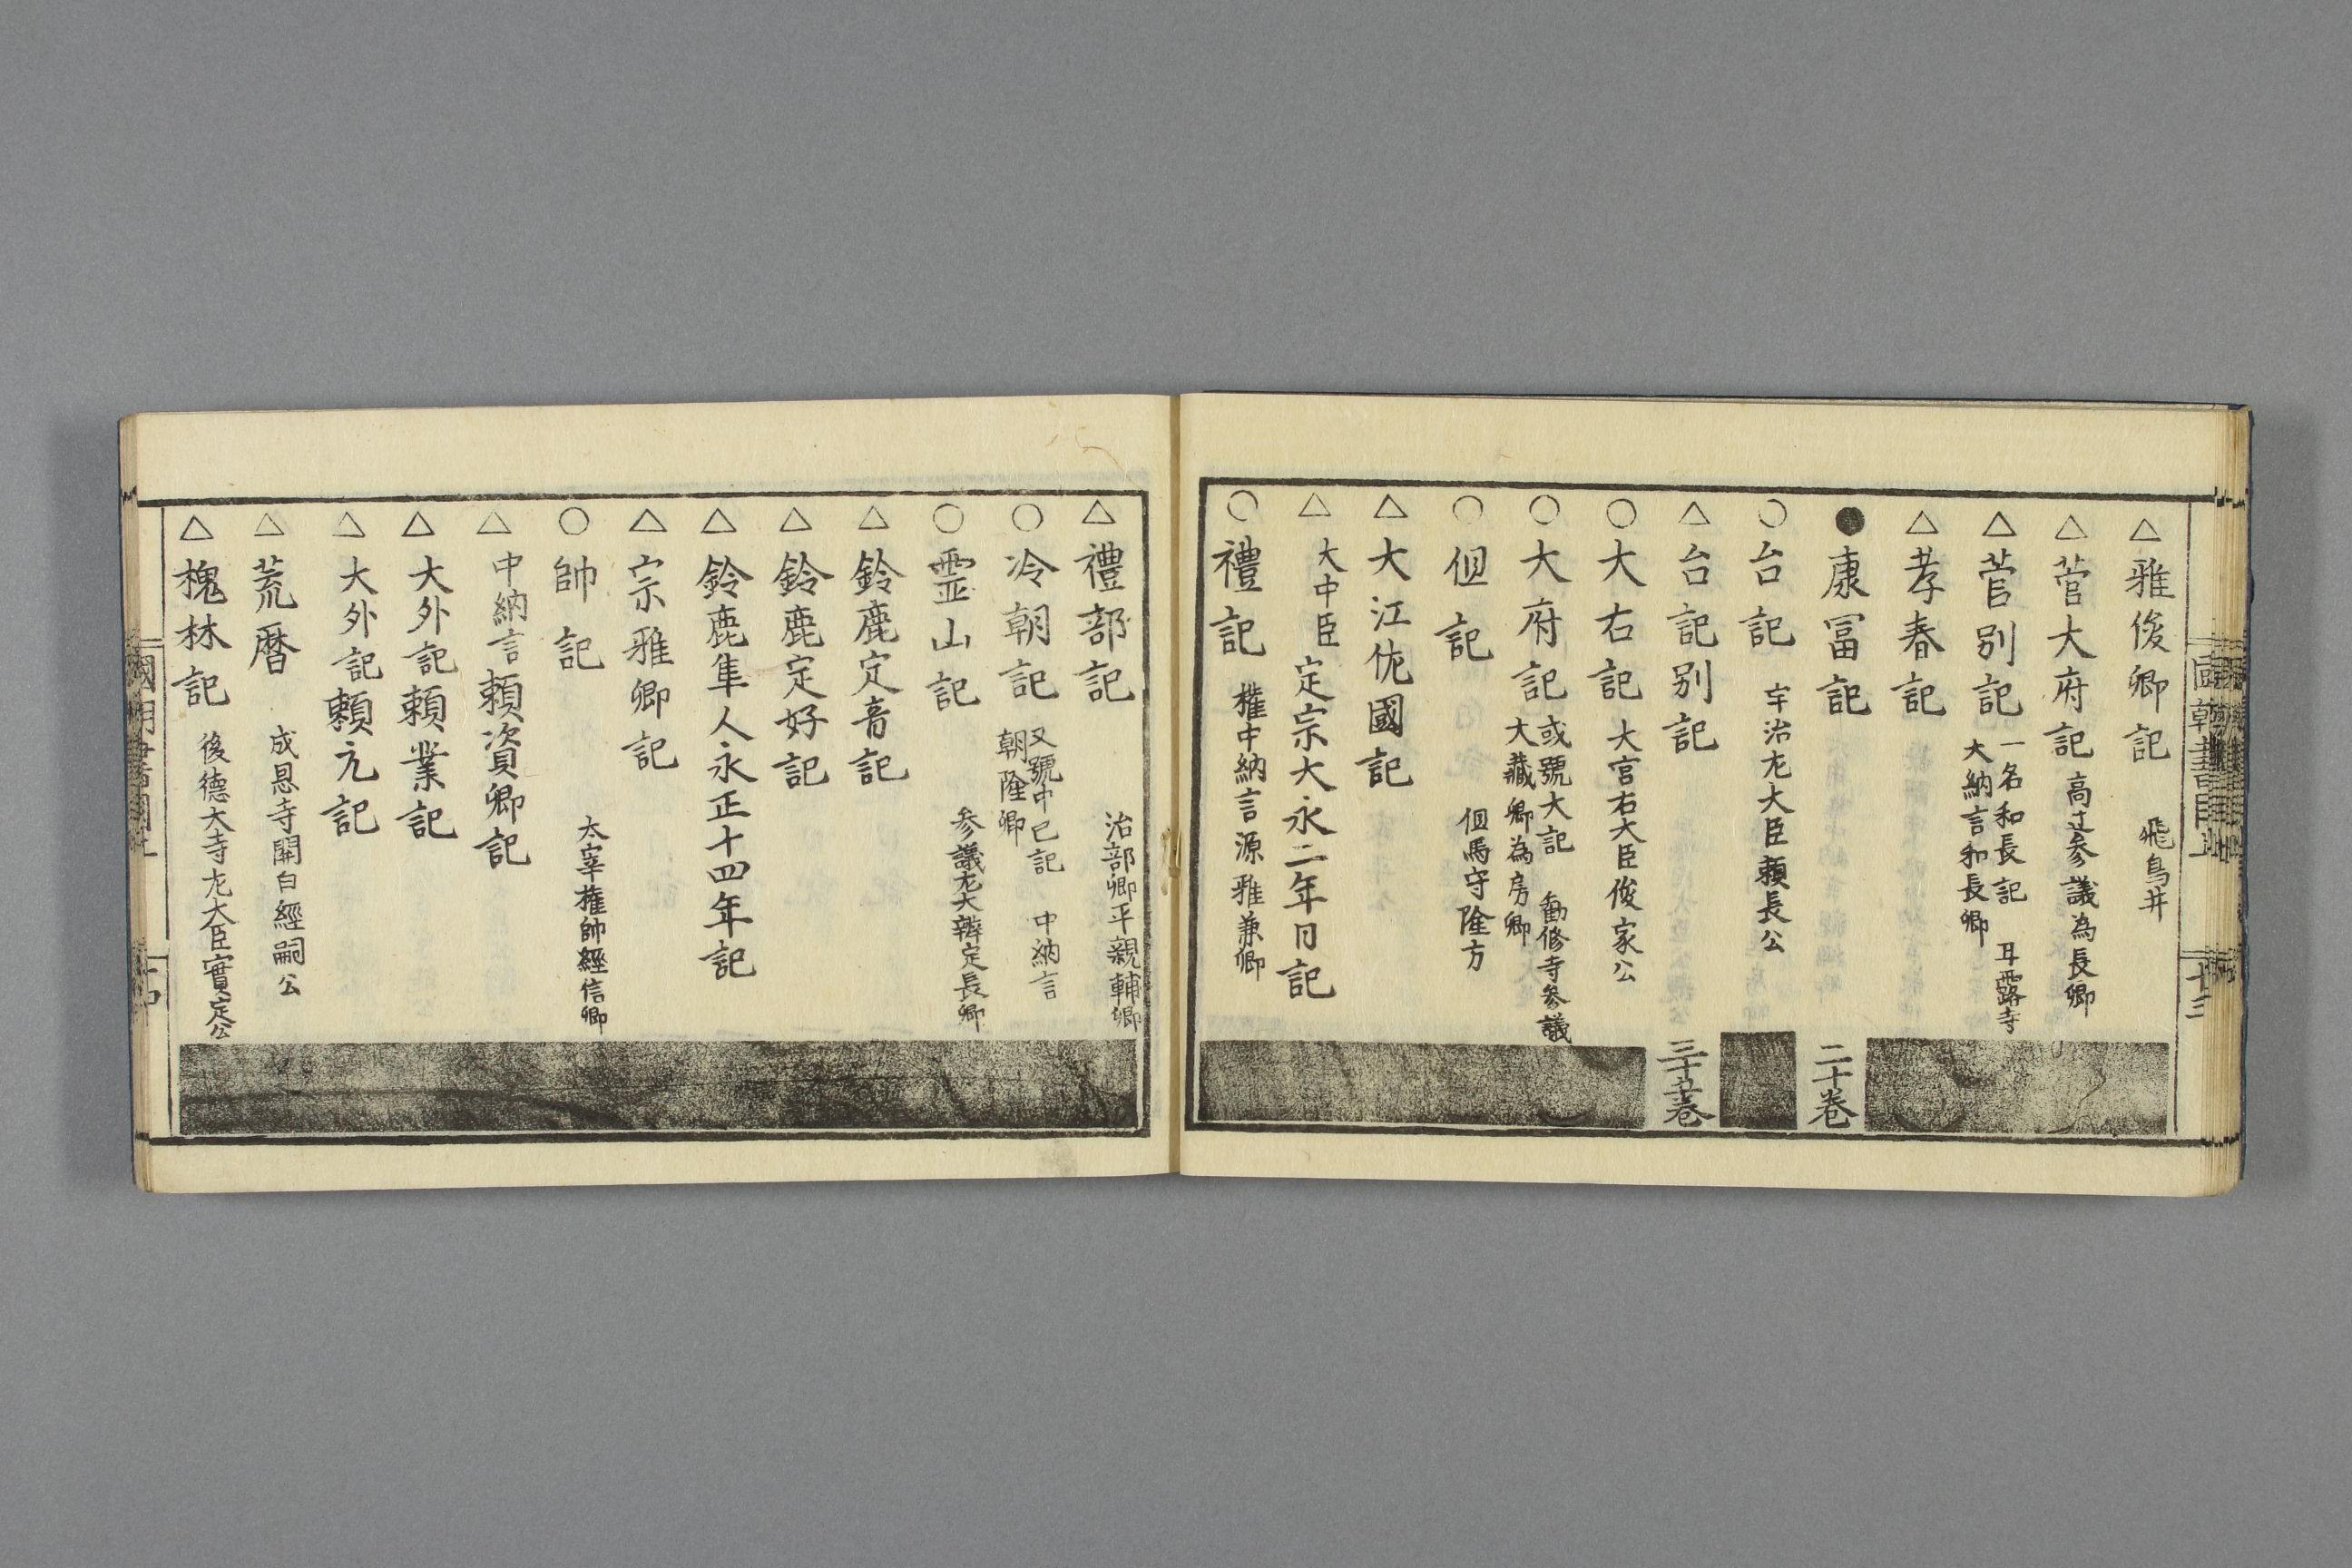 △雅俊卿記 飛鳥井
△菅大府記 高辻參議為長卿
△菅別記 一名和長記 耳露寺大納言和長卿
△孝春記
●康冨記 二十卷
○台記 宇治左大臣頼長公
△台記別記 三十五卷
○大右記 大宮右大臣俊家公
○大府記 或號大記 勸修寺參議大藏卿為房卿
○但記 但馬守隆方
△大江佐國記
△大中臣定宗大永二年日記
○禮記 權中納言源雅兼卿
國朝書目 上
十三
△禮部記 治部卿平親輔卿
○冷朝記 又號中已記 中納言朝隆卿
○霊山記 參議左大辨定長卿
△鈴鹿定音記
△鈴鹿定好記
△鈴鹿隼人永正十四年記
△宗雅卿記
○帥記 太宰權帥經信卿
△中納言頼資卿記
△大外記頼業記
△大外記頼元記
△荒暦 成恩寺關白經嗣公
△槐林記 後德大寺左大臣實定公